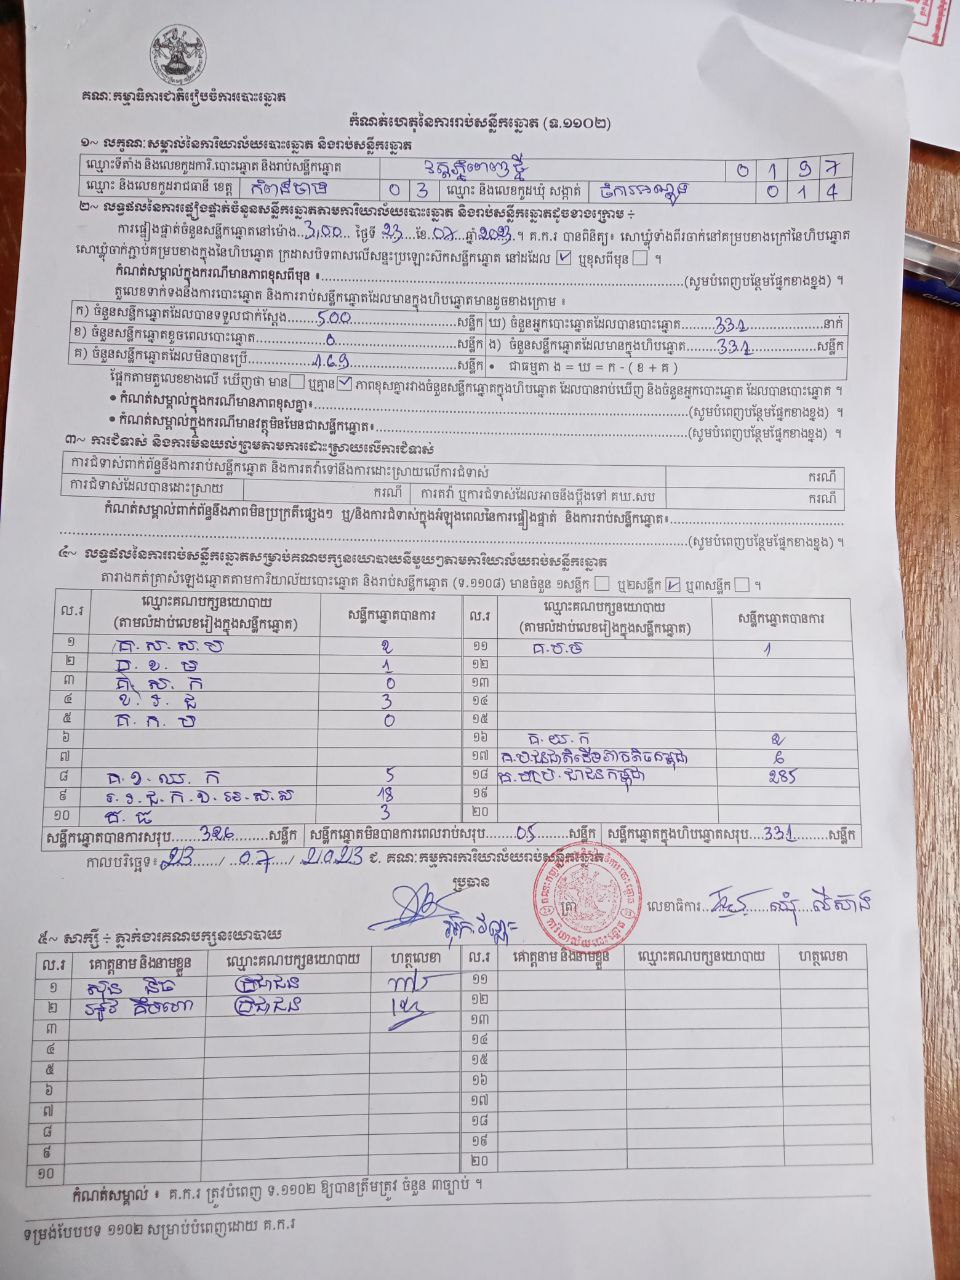 គណៈកម្មាធិការជាតិរៀបចំការបោះឆ្នោត
កំណត់ហេតុនៃការរាប់សន្លឹកឆ្នោត (ទ.១១០២)
១~ លក្ខណៈសម្គាល់នៃការិយាល័យបោះឆ្នោត និងរាប់សន្លឹកឆ្នោត
ឈ្មោះទីតាំង និងលេខកូដការិ.បោះឆ្នោត និងរាប់សន្លឹកឆ្នោត 0 1 9 7
ឈ្មោះ និងលេខកូដរាជធានី ខេត្ត កំពង់ចាម 0 3 ឈ្មោះ និងលេខកូដឃុំ សង្កាត់ 0 1 4
២~ លទ្ធផលនៃការផ្ទៀងផ្ទាត់ចំនួនសន្លឹកឆ្នោតតាមការិយាល័យបោះឆ្នោត និងរាប់សន្លឹកឆ្នោតដូចខាងក្រោម ÷
ការផ្ទៀងផ្ទាត់ចំនួនសន្លឹកឆ្នោតនៅម៉ោង 3,00 ថ្ងៃទី 23 ខែ 07 ឆ្នាំ 2023 ។ គ.ក.រ បានពិនិត្យ៖ សោឃ្លុំទាំងពីរចាក់នៅគម្របខាងក្រៅនៃហិបឆ្នោត
សោឃ្លុំចាក់ភ្ជាប់គម្របខាងក្នុងនៃហិបឆ្នោត ក្រដាសបិទពាសលើសន្ទះប្រឡោះស៊កសន្លឹកឆ្នោត នៅដដែល ☑ ឬខុសពីមុន ☐ ។
កំណត់សម្គាល់ក្នុងករណីមានភាពខុសពីមុន ៖ (សូមបំពេញបន្ថែមផ្នែកខាងខ្នង) ។
តួលេខទាក់ទងនឹងការបោះឆ្នោត និងការរាប់សន្លឹកឆ្នោតដែលមានក្នុងហិបឆ្នោតមានដូចខាងក្រោម ៖
ក) ចំនួនសន្លឹកឆ្នោតដែលបានទទួលជាក់ស្តែង 500 សន្លឹក ឃ) ចំនួនអ្នកបោះឆ្នោតដែលបានបោះឆ្នោត 331 នាក់
ខ) ចំនួនសន្លឹកឆ្នោតខូចពេលបោះឆ្នោត 0 សន្លឹក ង) ចំនួនសន្លឹកឆ្នោតដែលមានក្នុងហិបឆ្នោត 331 សន្លឹក
គ) ចំនួនសន្លឹកឆ្នោតដែលមិនបានប្រើ 169 សន្លឹក • ជាធម្មតា ង = ឃ = ក - ( ខ + គ )
ផ្អែកតាមតួលេខខាងលើ ឃើញថា មាន ☐ ឬគ្មាន ☑ ភាពខុសគ្នារវាងចំនួនសន្លឹកឆ្នោតក្នុងហិបឆ្នោត ដែលបានរាប់ឃើញ និងចំនួនអ្នកបោះឆ្នោត ដែលបានបោះឆ្នោត ។
• កំណត់សម្គាល់ក្នុងករណីមានភាពខុសគ្នា៖ (សូមបំពេញបន្ថែមផ្នែកខាងខ្នង) ។
• កំណត់សម្គាល់ក្នុងករណីមានវត្ថុមិនមែនជាសន្លឹកឆ្នោត៖ (សូមបំពេញបន្ថែមផ្នែកខាងខ្នង) ។
៣~ ការជំទាស់ និងការមិនយល់ព្រមតាមការដោះស្រាយលើការជំទាស់
ការជំទាស់ពាក់ព័ន្ធនឹងការរាប់សន្លឹកឆ្នោត និងការតវ៉ាទៅនឹងការដោះស្រាយលើការជំទាស់ ករណី
ការជំទាស់ដែលបានដោះស្រាយ ករណី ការតវ៉ា ឬការជំទាស់ដែលអាចនឹងប្តឹងទៅ គឃ.សប ករណី
កំណត់សម្គាល់ពាក់ព័ន្ធនឹងភាពមិនប្រក្រតីផ្សេងៗ ឬ/និងការជំទាស់ក្នុងអំឡុងពេលនៃការផ្ទៀងផ្ទាត់ និងការរាប់សន្លឹកឆ្នោត៖
(សូមបំពេញបន្ថែមផ្នែកខាងខ្នង) ។
៤~ លទ្ធផលនៃការរាប់សន្លឹកឆ្នោតសម្រាប់គណបក្សនយោបាយនីមួយៗតាមការិយាល័យរាប់សន្លឹកឆ្នោត
តារាងកត់ត្រាសំឡេងឆ្នោតតាមការិយាល័យបោះឆ្នោត និងរាប់សន្លឹកឆ្នោត (ទ.១១០៨) មានចំនួន ១សន្លឹក ☐ ឬ២សន្លឹក ☑ ឬ៣សន្លឹក ☐ ។
ល.រ ឈ្មោះគណបក្សនយោបាយ (តាមលំដាប់លេខរៀងក្នុងសន្លឹកឆ្នោត) សន្លឹកឆ្នោតបានការ ល.រ ឈ្មោះគណបក្សនយោបាយ (តាមលំដាប់លេខរៀងក្នុងសន្លឹកឆ្នោត) សន្លឹកឆ្នោតបានការ
១ គ.ស.ស.ប 2 ១១ គ.ប.ច 1
២ គ.ខ.ម 1 ១២
៣ គ.ស.ក 0 ១៣
៤ ខ.រ.ជ 3 ១៤
៥ គ.ក.ម 0 ១៥
៦ ១៦ គ.យ.ក 2
៧ ១៧ គ.ប.ជនជាតិដើមភាគតិចកម្ពុជា 6
៨ គ.ឯ.ឈ.ក 5 ១៨ គ.បប្រជាជនកម្ពុជា 285
៩ 18 ១៩
១០ 3 ២០
សន្លឹកឆ្នោតបានការសរុប 326 សន្លឹក សន្លឹកឆ្នោតមិនបានការពេលរាប់សរុប 05 សន្លឹក សន្លឹកឆ្នោតក្នុងហិបឆ្នោតសរុប 331 សន្លឹក
កាលបរិច្ឆេទ៖ 23 / 07 / 2023 ជ. គណៈកម្មការការិយាល័យរាប់សន្លឹកឆ្នោត
ប្រធាន
ត្រា
លេខាធិការ ឃុំ លីសាង
៥~ សាក្សី ÷ ភ្នាក់ងារគណបក្សនយោបាយ
ល.រ គោត្តនាម និងនាមខ្លួន ឈ្មោះគណបក្សនយោបាយ ហត្ថលេខា ល.រ គោត្តនាម និងនាមខ្លួន ឈ្មោះគណបក្សនយោបាយ ហត្ថលេខា
១ ស៊ុន និធ ប្រជាជន ១១
២ គឹមហោ ប្រជាជន ១២
៣ ១៣
៤ ១៤
៥ ១៥
៦ ១៦
៧ ១៧
៨ ១៨
៩ ១៩
១០ ២០
កំណត់សម្គាល់ ៖ គ.ក.រ ត្រូវបំពេញ ទ.១១០២ ឱ្យបានត្រឹមត្រូវ ចំនួន ៣ច្បាប់ ។
ទម្រង់បែបបទ ១១០២ សម្រាប់បំពេញដោយ គ.ក.រ